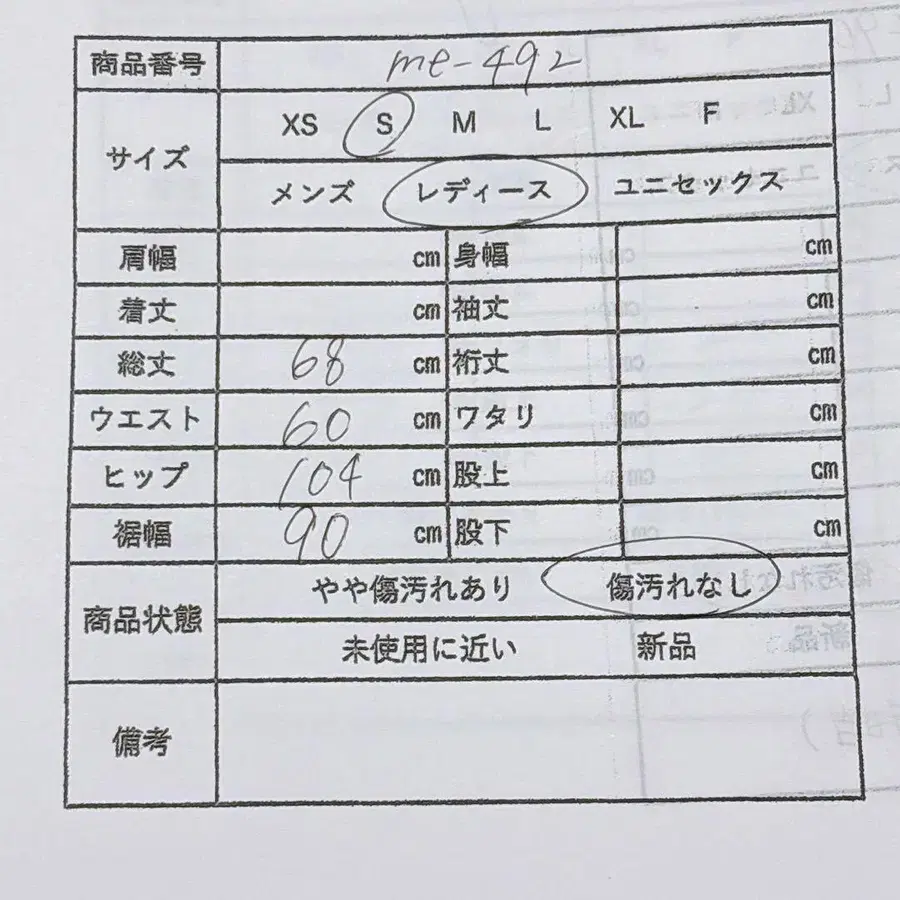 商品番号 me-492
サイズ XS S M L XL F
メンズ レディース ユニセックス
肩幅 cm 身幅 cm
着丈 cm 袖丈 cm
総丈 68 cm 裄丈 cm
ウエスト 60 cm ワタリ cm
ヒップ 104 cm 股上 cm
裾幅 90 cm 股下 cm
商品状態 やや傷汚れあり 傷汚れなし
未使用に近い 新品
備考